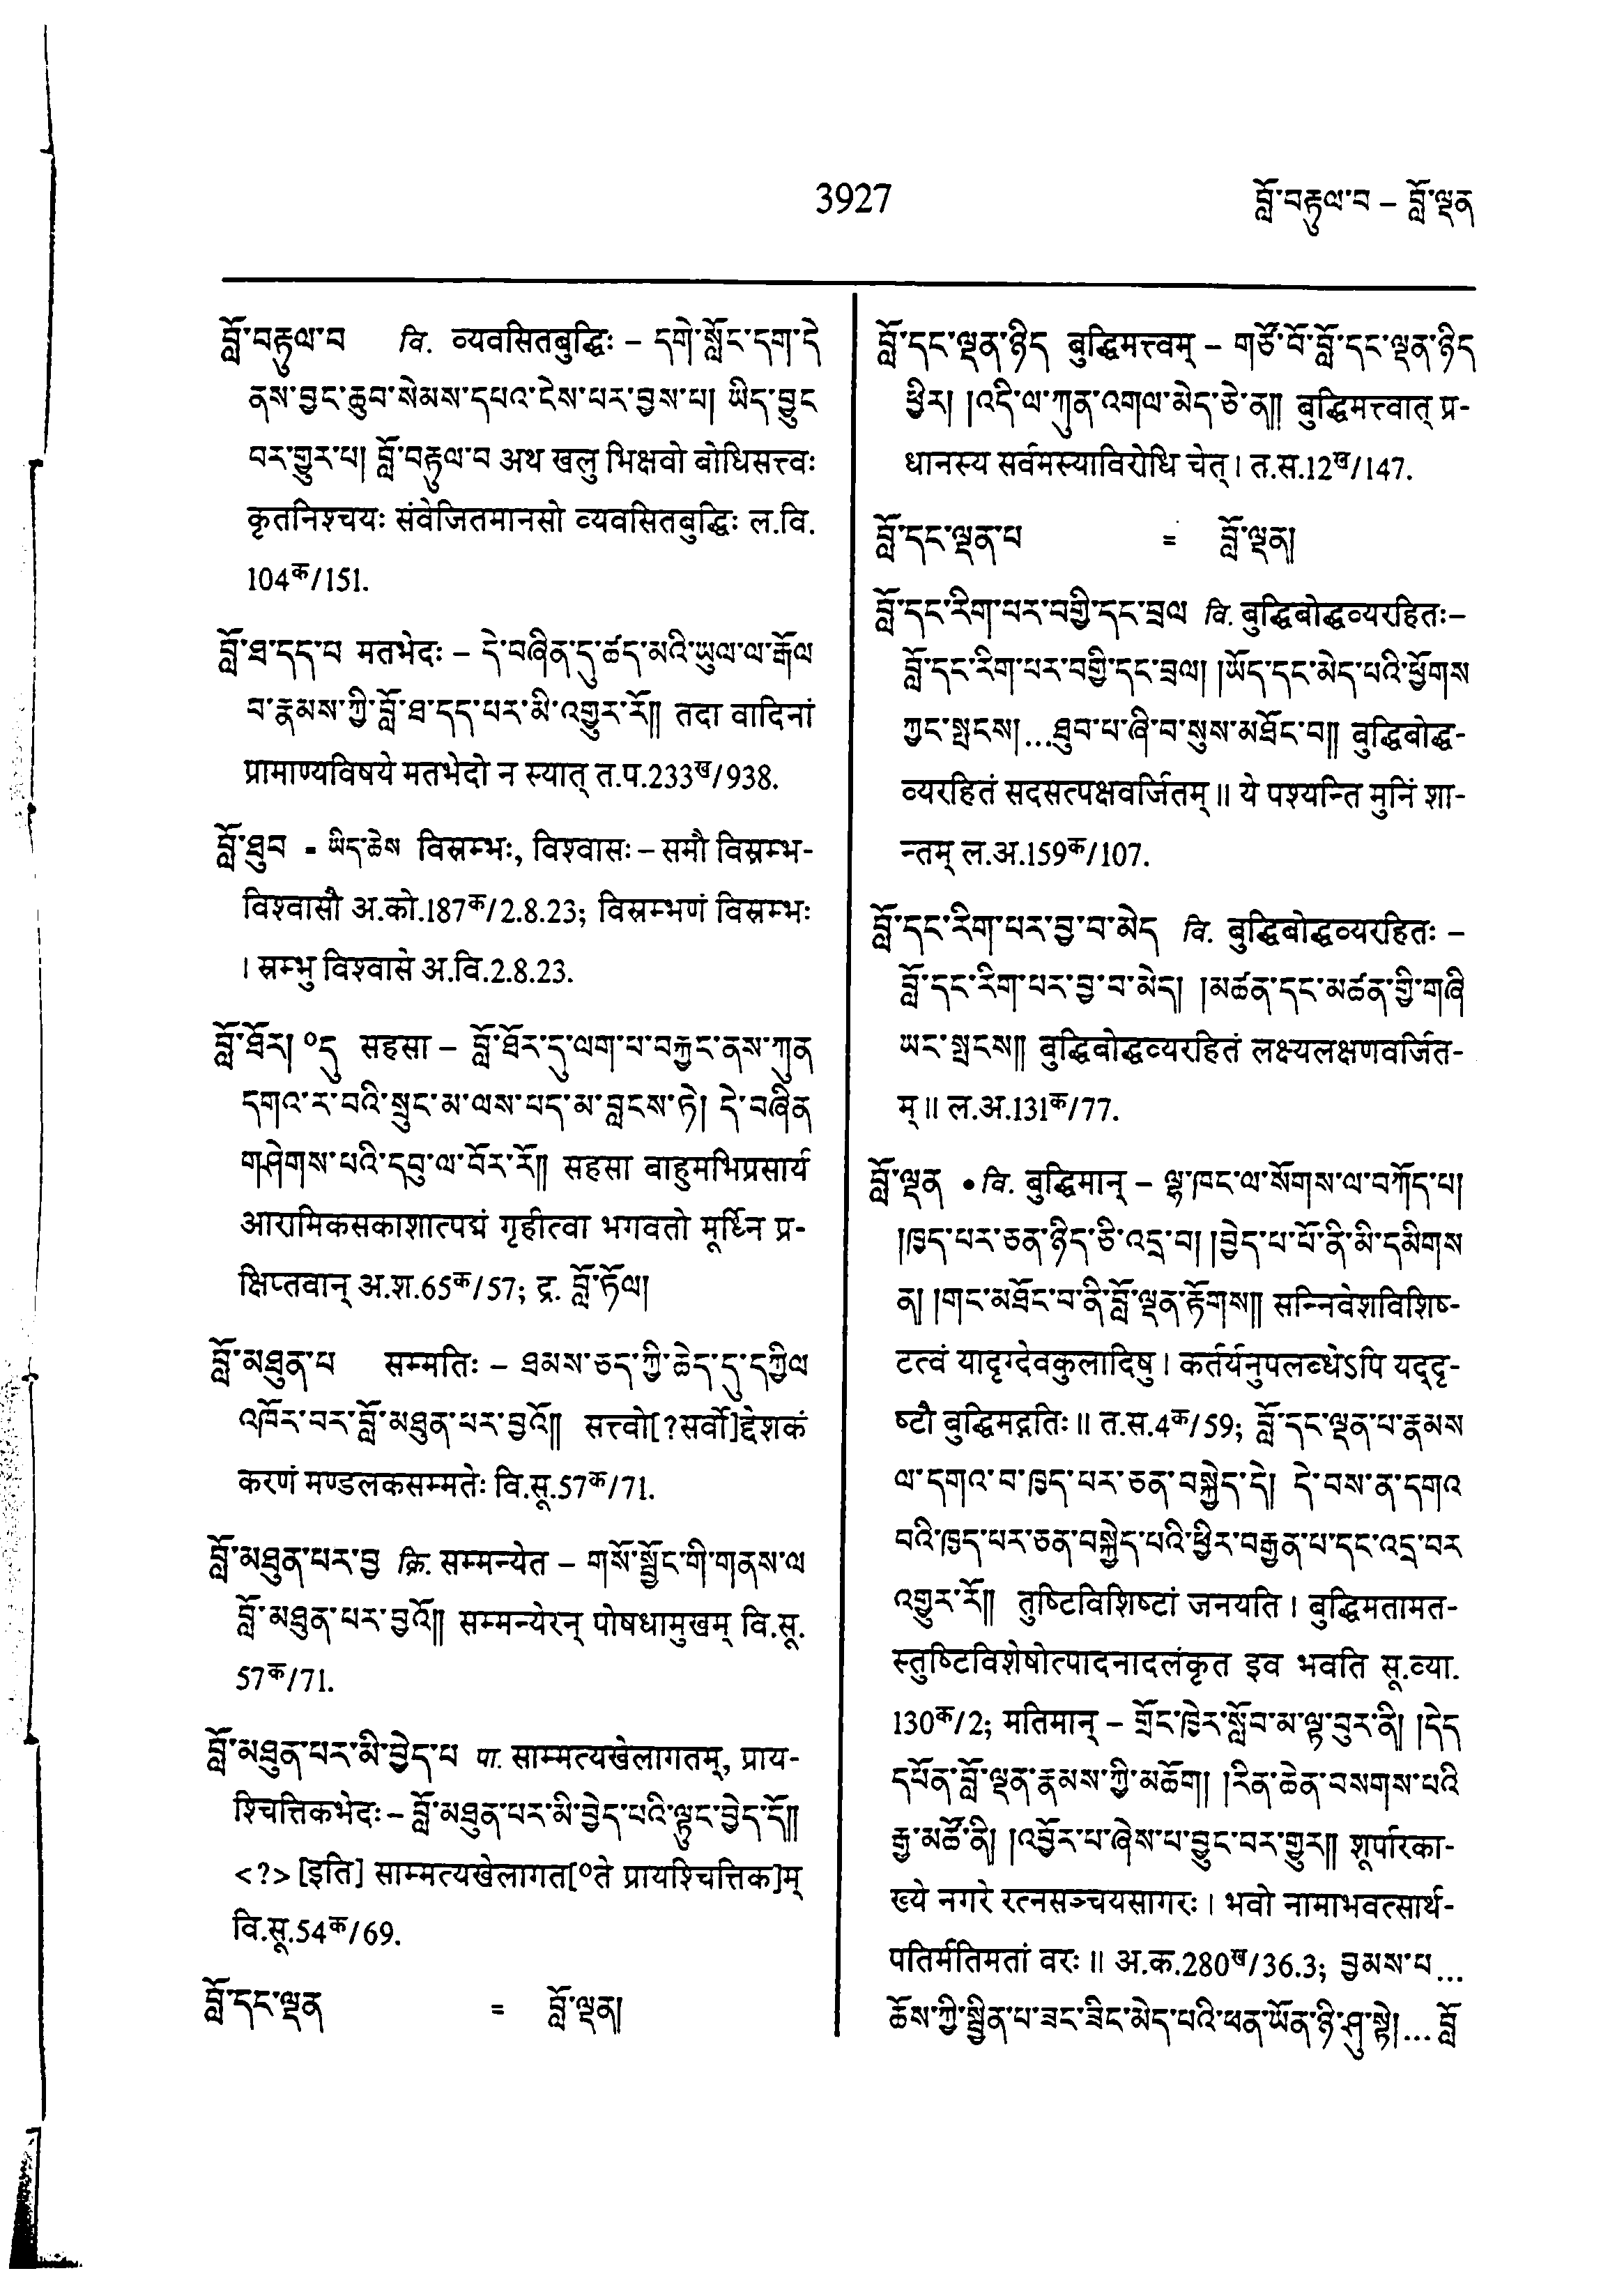 3927
བློ་བརྟུལ་བ – བློ་ལྡན
བློ་བརྟུལ་བ वि. व्यवसितबुद्धिः – དགེ་སློང་དག་དེ
ནས་བྱང་ཆུབ་སེམས་དཔའ་ངེས་པར་བྱས་པ། ཡིད་བྱུང
བར་གྱུར་པ། བློ་བརྟུལ་བ अथ खलु भिक्षवो बोधिसत्त्वः
कृतनिश्चयः संवेजितमानसो व्यवसितबुद्धिः ल.वि.
104क/151.
བློ་ཐ་དད་པ मतभेदः – དེ་བཞིན་དུ་ཚད་མའི་ཡུལ་ལ་རྒོལ
བ་རྣམས་ཀྱི་བློ་ཐ་དད་པར་མི་འགྱུར་རོ།། तदा वादिनां
प्रामाण्यविषये मतभेदो न स्यात् त.प.233ख/938.
བློ་ཐུབ = ཡིད་ཆེས विस्रम्भः, विश्वासः – समौ विस्रम्भ-
विश्वासौ अ.को.187क/2.8.23; विस्रम्भणं विस्रम्भः
। स्रम्भु विश्वासे अ.वि.2.8.23.
བློ་ཐོར། ०དུ सहसा – བློ་ཐོར་དུ་ལག་པ་བརྐྱང་ནས་ཀུན
དགའ་ར་བའི་སྲུང་མ་ལས་པད་མ་བླངས་ཏེ། དེ་བཞིན
གཤེགས་པའི་དབུ་ལ་བོར་རོ།། सहसा बाहुमभिप्रसार्य
आरामिकसकाशात्पद्मं गृहीत्वा भगवतो मूर्ध्नि प्र-
क्षिप्तवान् अ.श.65क/57; द्र. བློ་ཏོལ།
བློ་མཐུན་པ सम्मतिः – ཐམས་ཅད་ཀྱི་ཆེད་དུ་དཀྱིལ
འཁོར་བར་བློ་མཐུན་པར་བྱའོ།། सत्त्वो[?सर्वो]द्देशकं
करणं मण्डलकसम्मतेः वि.सू.57क/71.
བློ་མཐུན་པར་བྱ क्रि. सम्मन्येत – གསོ་སྦྱོང་གི་གནས་ལ
བློ་མཐུན་པར་བྱའོ།། सम्मन्येरन् पोषधामुखम् वि.सू.
57क/71.
བློ་མཐུན་པར་མི་བྱེད་པ पा. साम्मत्यखेलागतम्, प्राय-
श्चित्तिकभेदः – བློ་མཐུན་པར་མི་བྱེད་པའི་ལྟུང་བྱེད་དོ།།
<?> [इति] साम्मत्यखेलागत[०ते प्रायश्चित्तिक]म्
वि.सू.54क/69.
བློ་དང་ལྡན = བློ་ལྡན།
བློ་དང་ལྡན་ཉིད बुद्धिमत्त्वम् – གཙོ་བོ་བློ་དང་ལྡན་ཉིད
ཕྱིར། །འདི་ལ་ཀུན་འགལ་མེད་ཅེ་ན།། बुद्धिमत्त्वात् प्र-
धानस्य सर्वमस्याविरोधि चेत्। त.स.12ख/147.
བློ་དང་ལྡན་པ = བློ་ལྡན།
བློ་དང་རིག་པར་བགྱི་དང་བྲལ वि. बुद्धिबोद्धव्यरहितः–
བློ་དང་རིག་པར་བགྱི་དང་བྲལ། །ཡོད་དང་མེད་པའི་ཕྱོགས
ཀྱང་སྤངས།...ཐུབ་པ་ཞི་བ་སུས་མཐོང་བ།། बुद्धिबोद्ध-
व्यरहितं सदसत्पक्षवर्जितम्॥ ये पश्यन्ति मुनिं शा-
न्तम् ल.अ.159क/107.
བློ་དང་རིག་པར་བྱ་བ་མེད वि. बुद्धिबोद्धव्यरहितः –
བློ་དང་རིག་པར་བྱ་བ་མེད། །མཚན་དང་མཚན་གྱི་གཞི
ཡང་སྤངས།། बुद्धिबोद्धव्यरहितं लक्ष्यलक्षणवर्जित-
म्॥ ल.अ.131क/77.
བློ་ལྡན • वि. बुद्धिमान् – ལྷ་ཁང་ལ་སོགས་ལ་བཀོད་པ།
།ཁྱད་པར་ཅན་ཉིད་ཅི་འདྲ་བ། །བྱེད་པ་པོ་ནི་མི་དམིགས
ན། །གང་མཐོང་བ་ནི་བློ་ལྡན་རྟོགས།། सन्निवेशविशिष-
टत्वं यादृग्देवकुलादिषु। कर्तर्यनुपलब्धेऽपि यद्दृ-
ष्टौ बुद्धिमद्गतिः॥ त.स.4क/59; བློ་དང་ལྡན་པ་རྣམས
ལ་དགའ་བ་ཁྱད་པར་ཅན་བསྐྱེད་དེ། དེ་བས་ན་དགའ
བའི་ཁྱད་པར་ཅན་བསྐྱེད་པའི་ཕྱིར་བརྒྱན་པ་དང་འདྲ་བར
འགྱུར་རོ།། तुष्टिविशिष्टां जनयति। बुद्धिमतामत-
स्तुष्टिविशेषोत्पादनादलंकृत इव भवति सू.व्या.
130क/2; मतिमान् – གྲོང་ཁྱེར་སློབ་མ་ལྟ་བུར་ནི། །དེད
དཔོན་བློ་ལྡན་རྣམས་ཀྱི་མཆོག །རིན་ཆེན་བསགས་པའི
རྒྱ་མཚོ་ནི། །འབྱོར་པ་ཞེས་པ་བྱུང་བར་གྱུར།། शूर्पारका-
ख्ये नगरे रत्नसञ्चयसागरः। भवो नामाभवत्सार्थ-
पतिर्मतिमतां वरः॥ अ.क.280ख/36.3; བྱམས་པ...
ཆོས་ཀྱི་སྦྱིན་པ་ཟང་ཟིང་མེད་པའི་ཕན་ཡོན་ཉི་ཤུ་སྟེ།... བློ